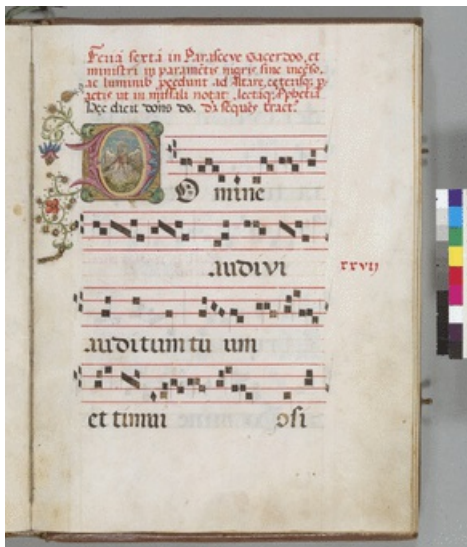 Feria sexta in Parasceve sacerdos, et
ministri in paramētis nigris sine incēso,
ac luminib procedunt ad Altare, et
actis ut in missali notat lectaq Pphetia
Hec dicit dons ds. dr sequēs tract.
O mine
audivi
xxvij
auditum tu um
et timui osi